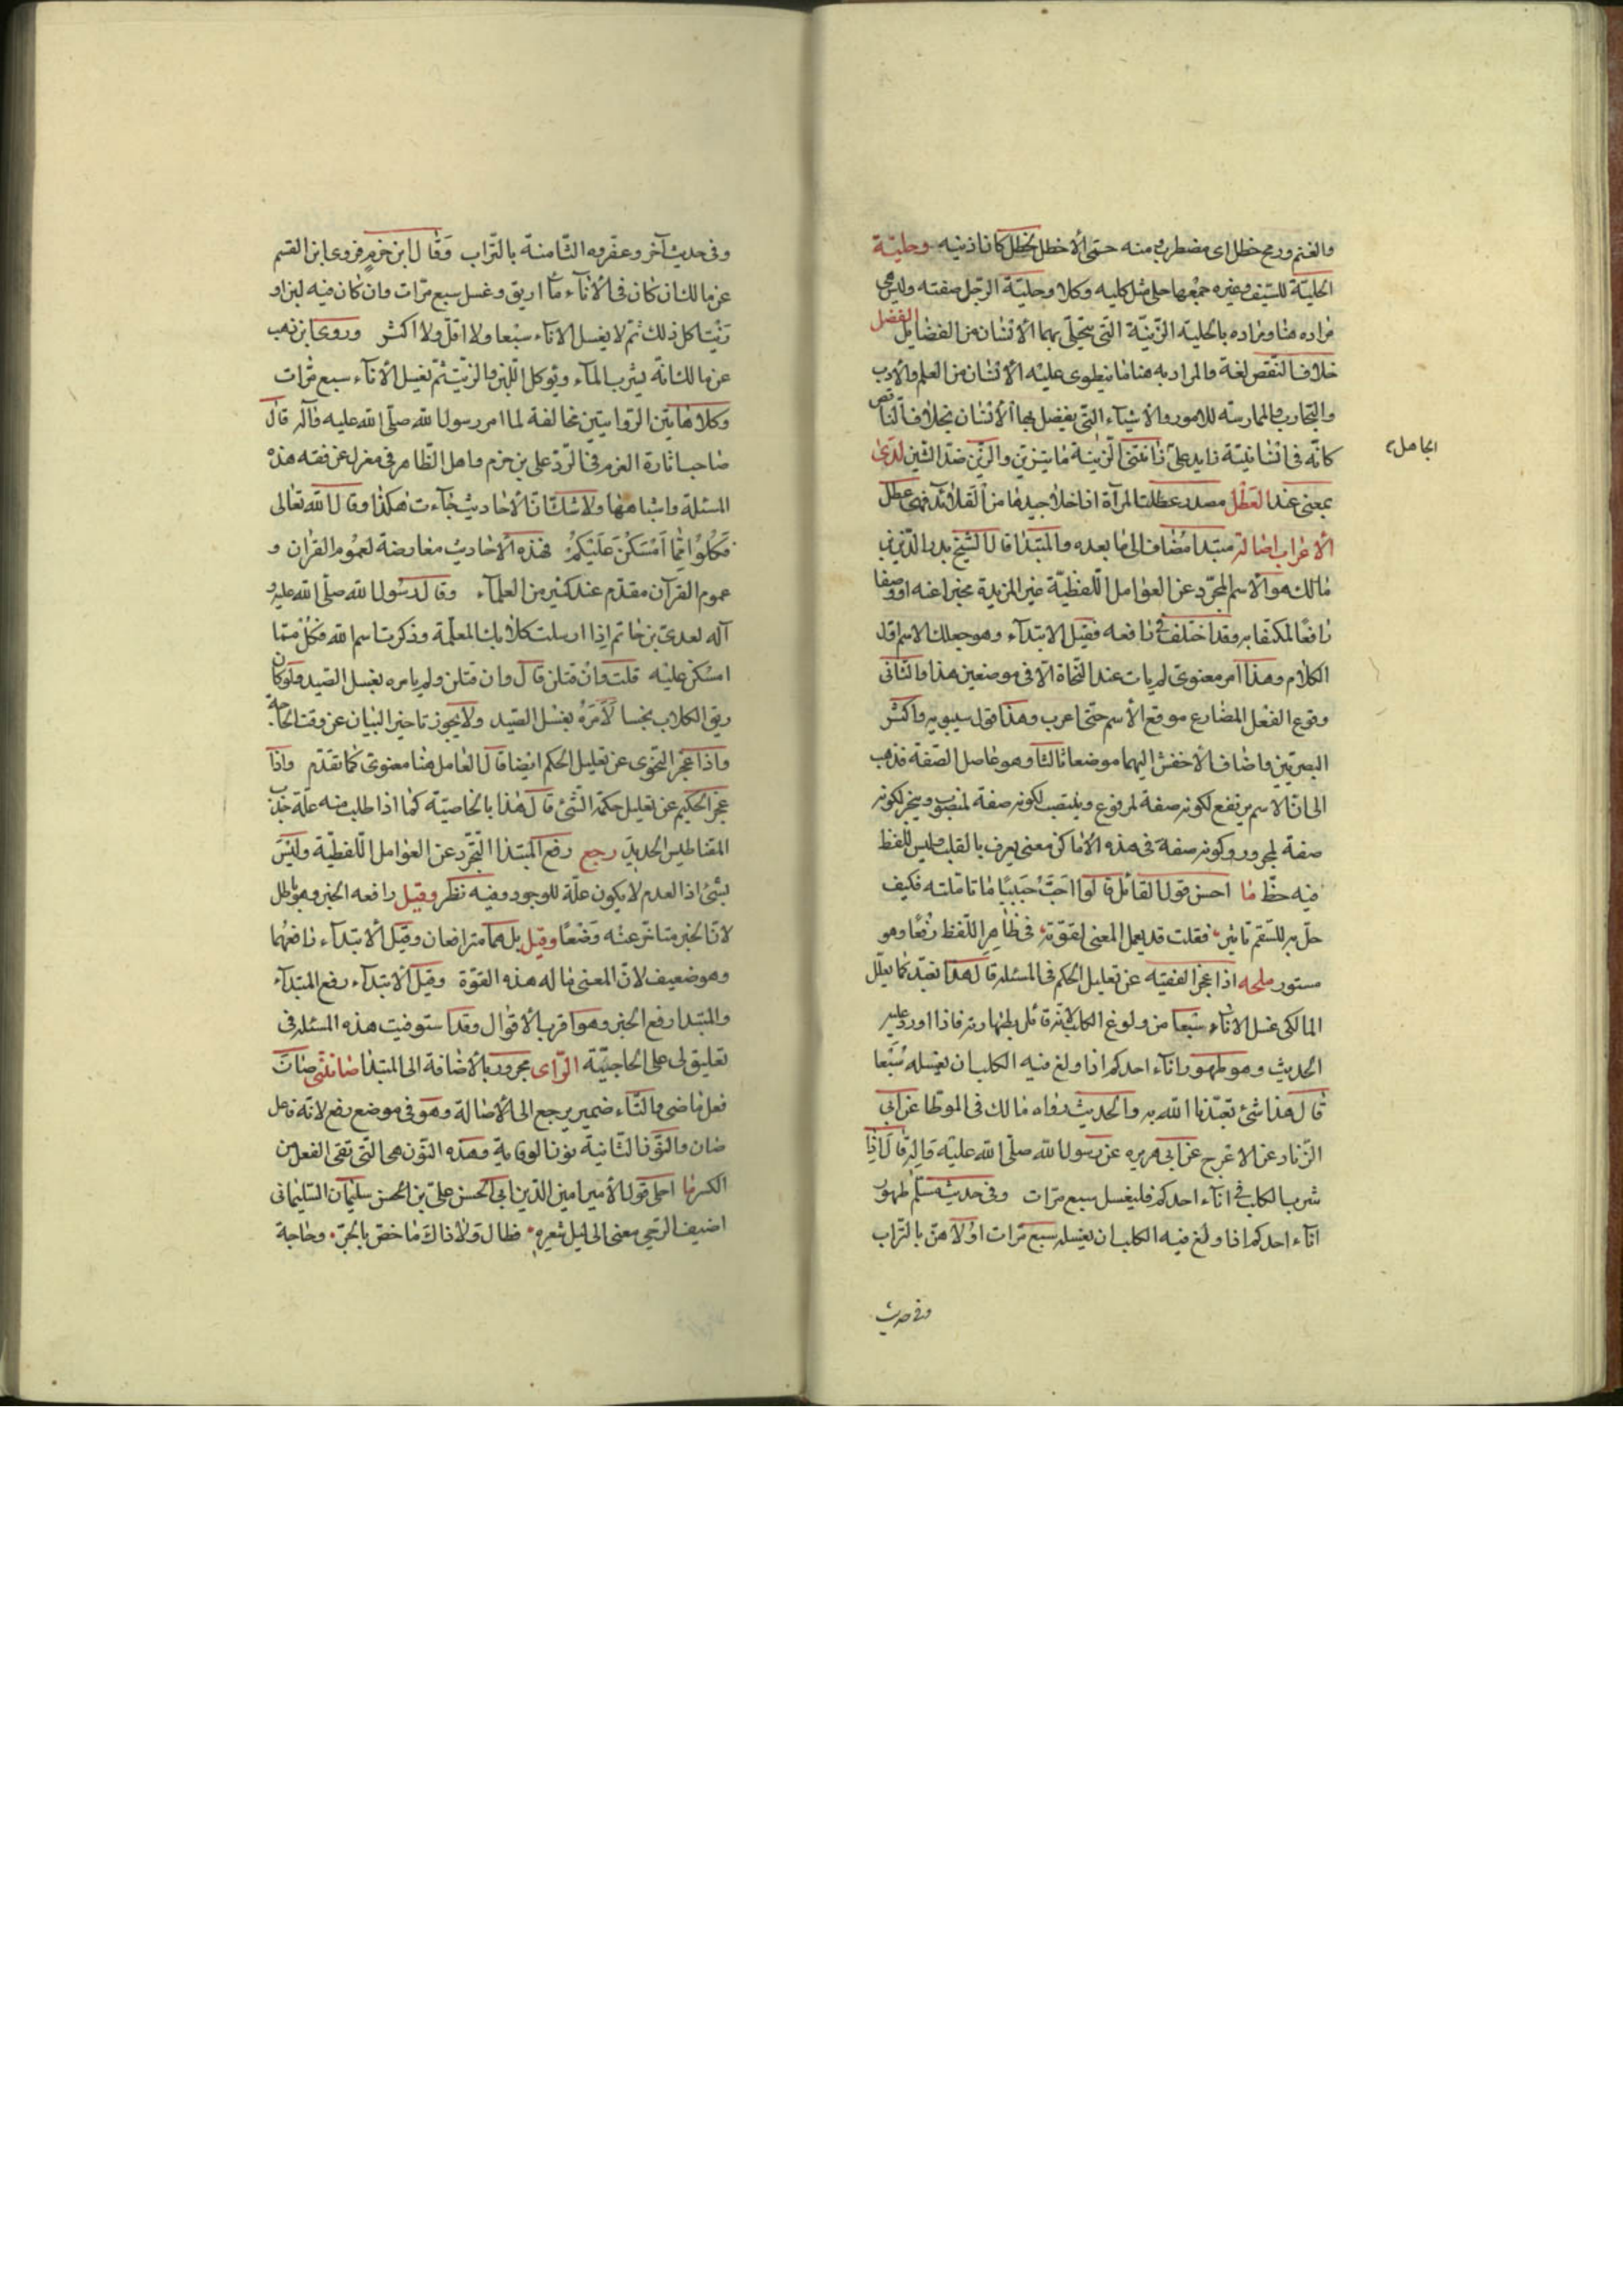 والغنم ورمح خطل اى مضطرب ومنه سمّى الأخطل لخطل كان اذنيه وحلية
الحلية للسّيف وغيره جمعها حلى مثل لحية وكلا وحليّة الرّجل صفته وليس هى
مراده هنا ومراده بالحلية الزّينة التى يتحلّى بهما الأنسان من الفضايل الفضل
خلاف النّقص لغة والمراد به هنا ما ينطوى عليه الأنسان من العلم والأدب
والتجارب والممارسة للامور والأشياء التى يفضل بها الأنسان بخلاف الناقص
الجاهل
كانّه فى انسانيّة زايد على زانتنى الزينة ما يتزين والزين ضدّ الشّين لدى
بمعنى عند العطل مصدر عطلت المرأة اذا خلا جيدها من القلائد فهى عطل
الأعراب اصالة مبتدا مضاف الى ما بعده والمبتدا قال الشّيخ بدر الدّين بن
مالك هو الأسم المجرّد عن العوامل اللّفظيّة غير المزيدة مخبرا عنه او وصفا
رافعًا لمكتفا به وقد اختلف فى رافعه فقيل الابتدآء وهو جعلك الاسم اوّل
الكلام وهذا امر معنوى لم يات عند النّحاة الّا فى موضعين هذا والثانى
وقوع الفعل المضارع موقع الأسم حتى اعرب وهذا قول سيبويه واكثر
البصريّين واضاف الأخفش اليهما موضعا ثالثا وهو عامل الصّفة فذهب
الى انّ الاسم يرتفع لكونه صفة لمرفوع وينتصب لكونه صفة لمنصوب وينجر لكونه
صفة لمجرور وكونه صفة فى هذه الأماكن معنى يعرف بالقلب وليس للّفظ
فيه حظّ ما احسن قول القائل قالوا احبّ حبيبًا ما تامّلته فكيف
حلّ به للسّقم تاثير فقلت قد يعمل المعنى لقوّته فى ظاهر اللّفظ رفعًا وهو
مستور ملحه اذا عجز الفقيه عن تعليل الحكم فى المسئلة قال هذا تعبّد كما يعلّل
المالكى غسل الاناء سبعا من ولوغ الكلب لانّه قائل بطهارته فاذا اورد عليه
الحديث وهو طهور انآء احدكم اذا ولغ فيه الكلب ان يغسله سبعا
قال هذا شئ تعبّدنا الله به والحديث رواه مالك فى الموطّا عن ابى
الزّناد عن الاعرج عن ابى هريره عن رسول الله صلّى الله عليه وآله قال اذا
شرب الكلب فى انآء احدكم فليغسل سبع مرّات وفى حديث مسلم طهور
انآء احدكم اذا ولغ فيه الكلب ان يغسله سبع مرّات اولاهنّ بالتّراب
وفى حديث
وفى حديث آخر وعفّروه الثّامنة بالتّراب وقال ابن حزم فروى ابن القسم
عن مالك ان كان فى الأناء ماء اريق وغسل سبع مرّات وان كان فيه لبن او
زيتا اكل ذلك ثمّ لا يغسل الاناء سبعا ولا اقلّ ولا اكثر وروى ابن وهب
عن مالك انّه يشرب الماء ويوكل اللّبن والزيت ثمّ يغسل الأناء سبع مرّات
وكلا هاتين الرّوايتين مخالفة لما امر رسول الله صلّى الله عليه وآله قال
صاحب اثارة العزم فى الرّد على بن حزم واهل الظّاهر فى معزل عن فقه هذه
المسئلة واشباهها ولا شك انّ الأحاديث جاءت هكذا وقال الله تعالى
فكلوا ممّا امسكن عليكم فهذه الأحاديث معارضة لعموم القرآن و
عموم القرآن مقدّم عند كثير من العلمآء وقال رسول الله صلّى الله عليه و
آله لعدى بن حاتم اذا ارسلت كلابك المعلّمة وذكرت اسم الله فكل ممّا
امسكن عليه قلت وان قتلن قال وان قتلن ولم يامره بغسل الصّيد ولو كان
ريق الكلاب نجسا لأمره بغسل الصّيد ولا يجوز تاخير البيان عن وقت الحاجة
واذا عجز النّحوى عن تعليل الحكم ايضا قال العامل هنا معنوى كما تقدّم واذا
عجز الحكيم عن تعليل حكمة الشّئ قال هذا بالخاصيّة كما اذا طلب منه علّة جذب
المقناطيس الحديد رجع رفع المبتدا التّجرّد عن العوامل اللّفظيّة وليس
بشئ اذ العدم لا يكون علّة للوجود وفيه نظر وقيل رافعه الخبر وهو باطل
لانّ الخبر متاخّر عنه وضعًا وقيل بل هما مترافعان وقيل الأبتداء رافعهما
وهو ضعيف لانّ المعنى ماله هذه القوّة وقيل الأبتدآء رفع المبتدآء
والمبتدا رفع الخبر وهو اقرب الأقوال وقد استوفيت هذه المسئلة فى
تعليق لى على الحاجبيّة الرّاى مجرور بالأضافة الى المبتدا صانتنى صان
فعل ماضى والتّاء ضمير يرجع الى الأصالة وهو فى موضع رفع لانّه فاعل
صان والنّون الثّانية نون الوقاية وهذه النّون هى التى تقى الفعل من
الكسر ما احلى قول الأمير امين الدّين ابى الحسن علىّ بن الحسن سليمان السّليمانى
اضيف الدّجى معنى الى ليل شعره فطال ولولا ذاك ما خصّ بالجرّ وحاجبه